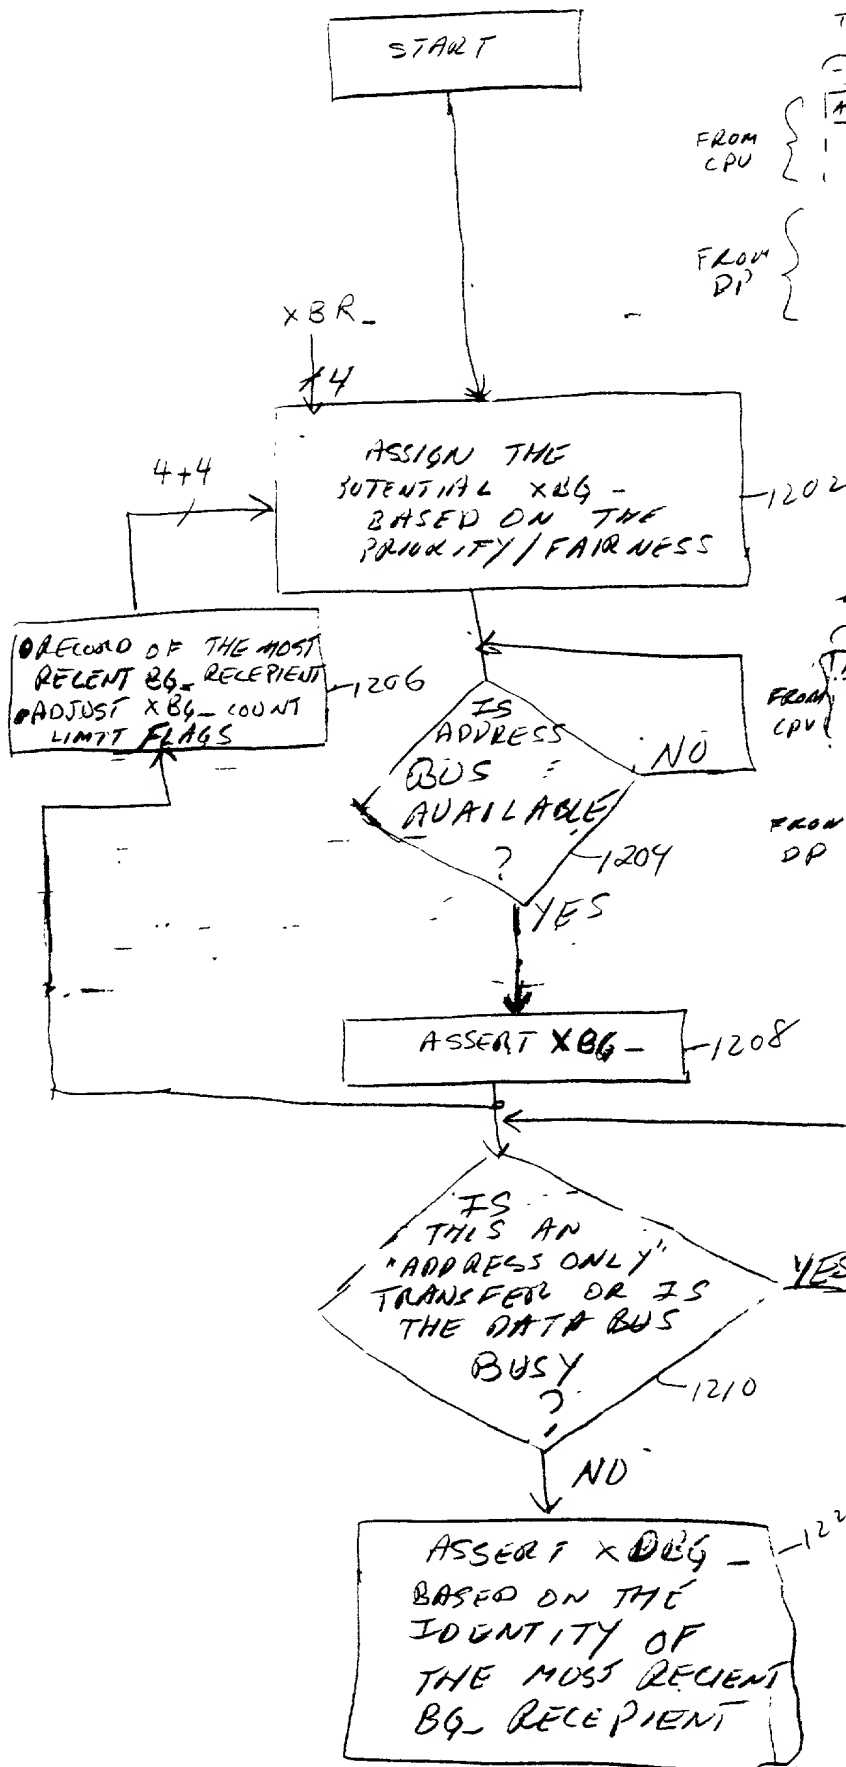 START
FROM
CPU
FROM
DP
XBR_
4
ASSIGN THE
POTENTIAL XBG_
BASED ON THE
PRIORITY/FAIRNESS
1202
4+4
RECORD OF THE MOST
RECENT BG_ RECEPIENT
ADJUST XBG_ COUNT
LIMIT FLAGS
1206
IS
ADDRESS
BUS
AVAILABLE
?
NO
1204
YES
FROM
CPU
FROM
DP
ASSERT XBG_
1208
IS
THIS AN
"ADDRESS ONLY"
TRANSFER OR IS
THE DATA BUS
BUSY
?
YES
1210
NO
ASSERT XDBG_
BASED ON THE
IDENTITY OF
THE MOST RECIENT
BG_ RECEPIENT